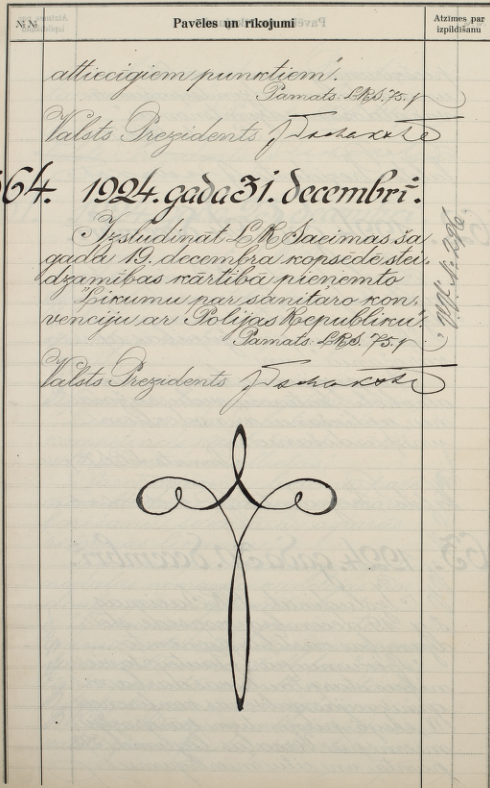 №№ Pavēles un rīkojumi Atzīmes par izpildīšanu
attiecīgiem punktiem".
Pamats: L.R.S. 75. p.
Valsts Prezidents J Tschakste
64. 1924. gada 31. decembrī.
Izsludināt L.R. Saeimas ša
gada 19. decembra kopsēdē stei-
dzamības kārtībā pieņemto
"Likumu par sanitāro kon-
venciju ar Polijas Republiku".
Pamats: L.R.S. 75. p.
Valsts Prezidents J Tschakste